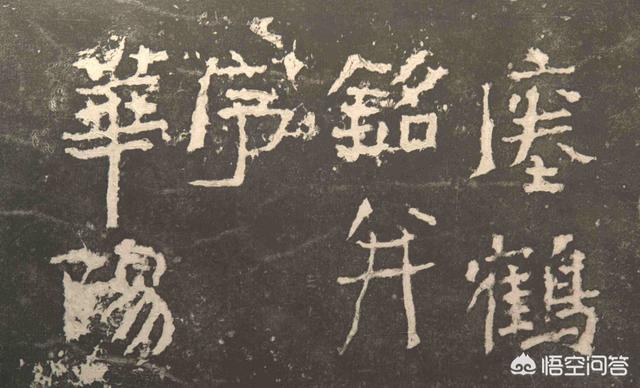 瘞鶴
銘并
序
華陽
悟空问答